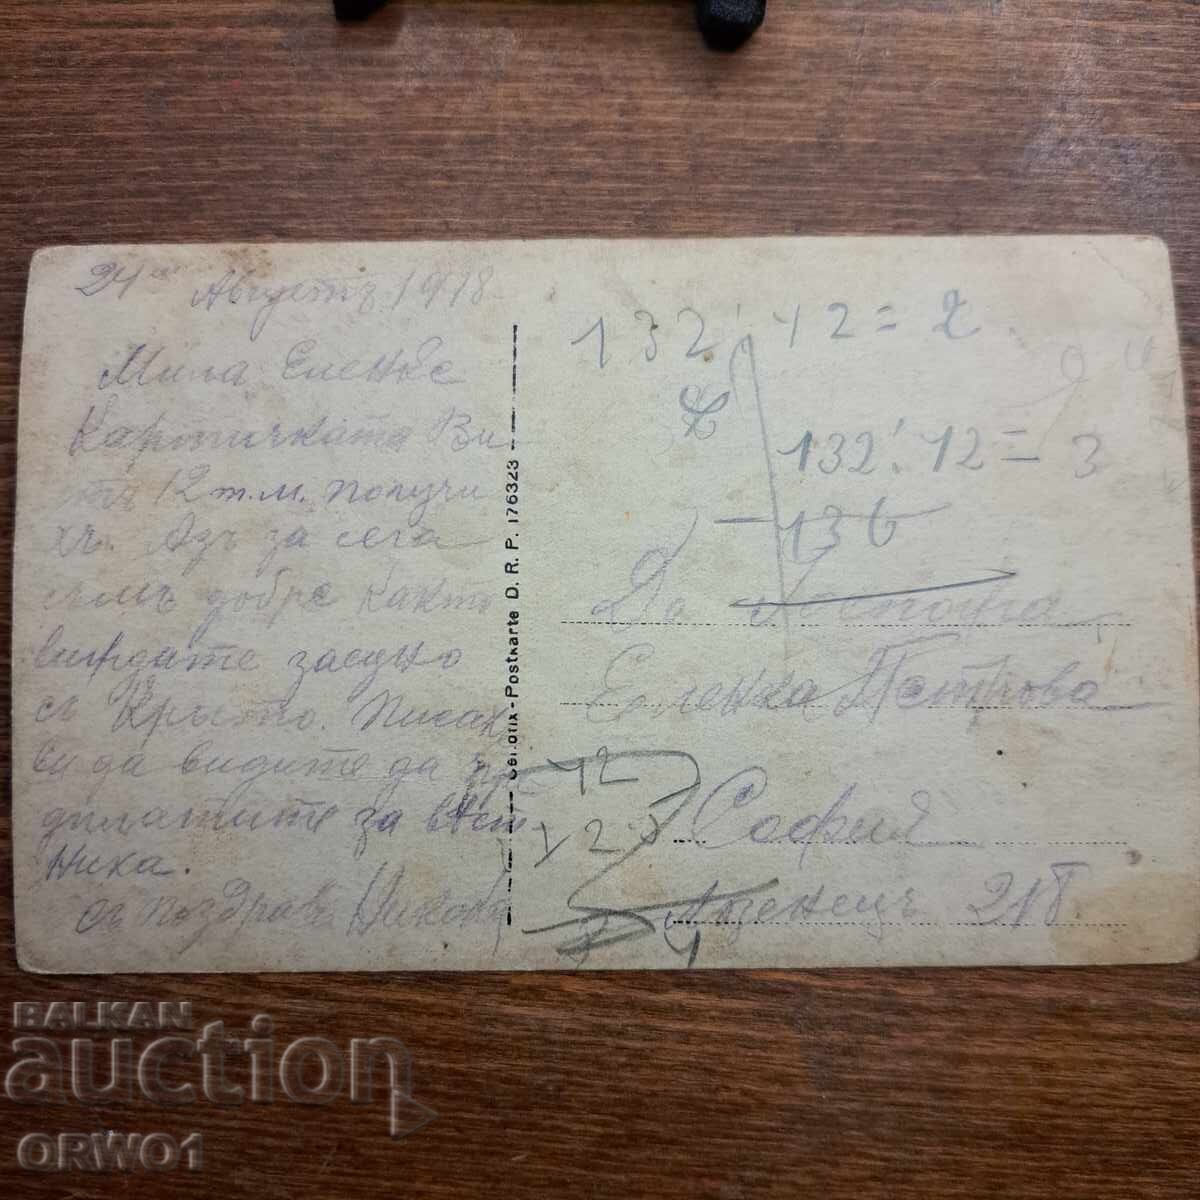 24 Августъ 1918
Мила Еленке
Картичката Ви
отъ 12 т.м. получи
хъ. Азъ за сега
съмъ добре както
виждате заедно
съ Кръстю. Писах
Ви да видите да пре
дплатите за вѣст-
ника.
съ поздравъ Никола
Serotix - Postkarte D. R. P. 176323
132 : 12 = 2
132 : 12 = 3
- 136
До Госпица
Еленка Петрова
12
12
София
Лозенецъ 218
BALKAN
auction
ORWO1